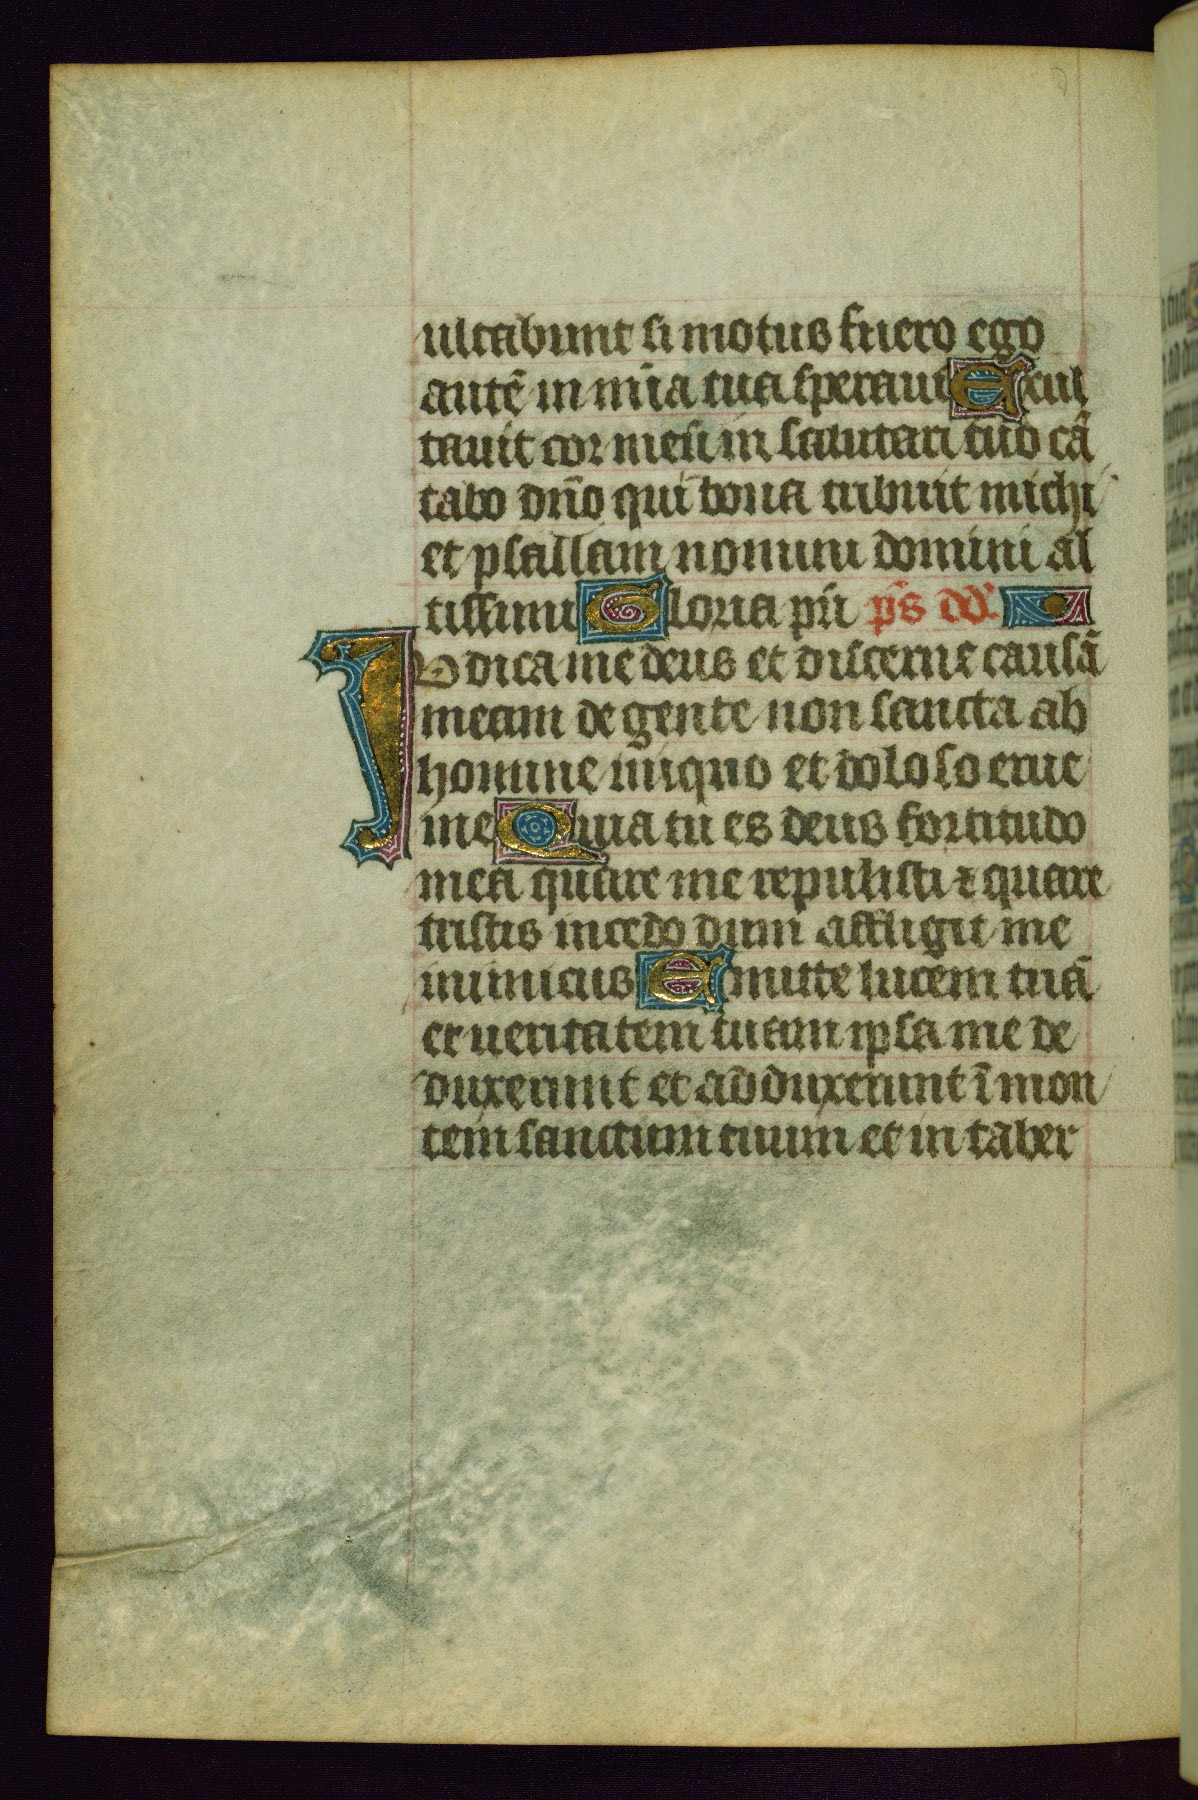 ultabunt si motus fuero ego
autē in mīa tua speraui Exul
tavit cor meū in salutari tuo cā
tabo dn̄o qui bona tribuit michi
et psallam nomini domini al
tissimi Gloria pr̄i ps̄ dd̄.
IVdica me deus et discerne causā
meam de gente non sancta ab
homine iniquo et doloso erue
me Quia tu es deus fortitudo
mea quare me repulisti ⁊ quare
tristis incedo dum affligit me
inimicus Emitte lucem tuā
et ueritatem tuam ipsa me de
duxerunt et adduxerunt ī mon
tem sanctum tuum et in taber